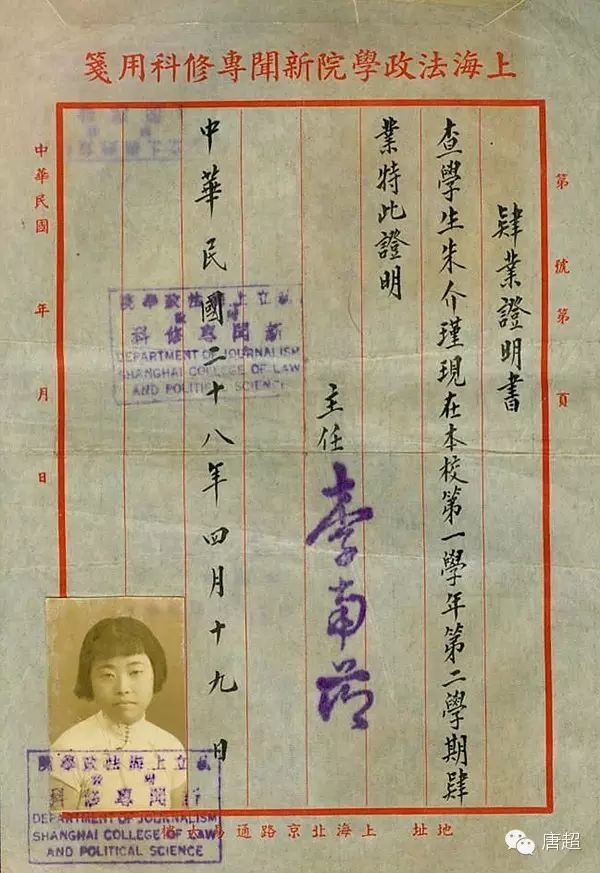 上海法政學院新聞專修科用箋
第 號第 頁
肄業證明書
查學生朱介瑾現在本校第一學年第二學期肄
業特此證明
主任 李南
中華民國二十八年四月十九日
中華民國 年 月 日
私立上海法政學院
新聞專修科
DEPARTMENT OF JOURNALISM
SHANGHAI COLLEGE OF LAW
AND POLITICAL SCIENCE
私立上海法政學院
新聞專修科
DEPARTMENT OF JOURNALISM
SHANGHAI COLLEGE OF LAW
AND POLITICAL SCIENCE
地址 上海北京路通易大樓
唐超